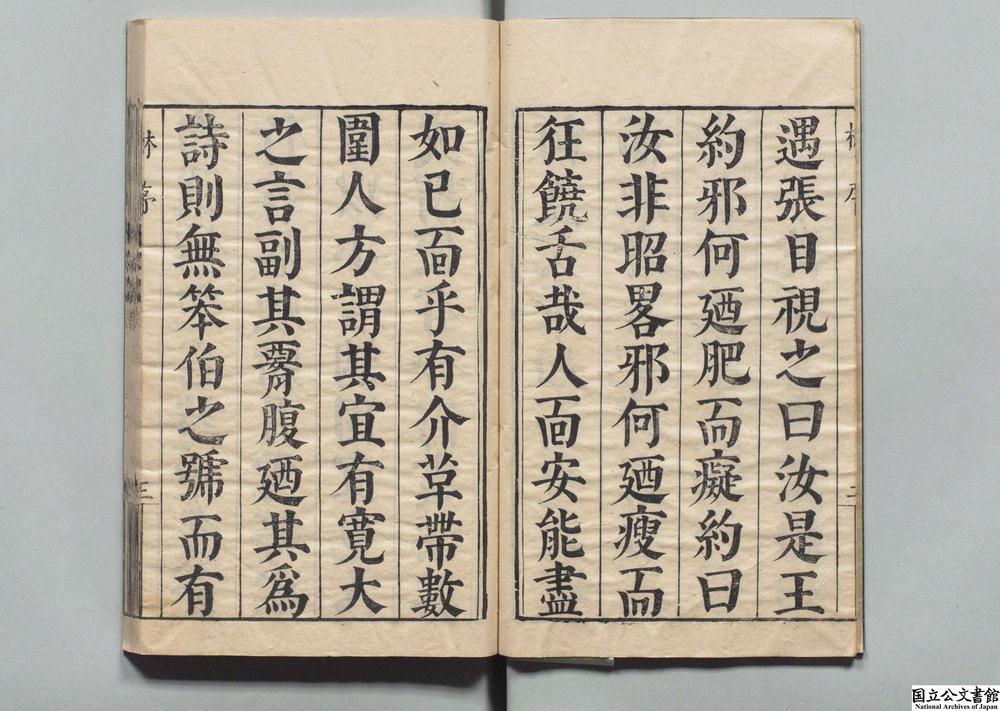 遇張目視之曰汝是王
約邪何廼肥而癡約曰
汝非昭畧邪何廼瘦而
狂饒舌哉人面安能盡
如已面乎有介草帶數
圍人方謂其宜有寬大
之言副其腹廼其為
詩則無笨伯之號而有
三
国立公文書館
National Archives of Japan